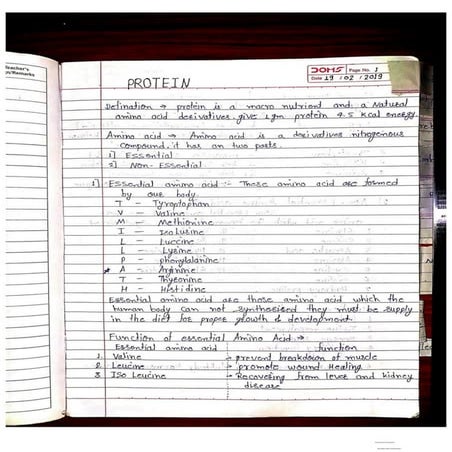 Teacher's
Sign/Remarks
DOMS Page No. 1
Date 19 / 02 / 2019
PROTEIN
Defination → protein is a macro nutrient and a Natural
amino acid derivatives. give 1 gm protein 4.5 kcal energy.
Amino acid → Amino acid is a derivatives nitrogenous
compound. it has on two parts.
1] Essential
2] Non-Essential
1] Essential amino acid :- Those amino acid are formed
by our body.
T - Tyroptophan
V - Valine
M - Methionine
I - Isolusine
L - Luccine
L - Lysine
P - phenylalanine
* A - Arginine
T - Thyeonine
H - Histidine
Essential amino acid are those amino acid which the
human body can not synthesised they must be supply
in the diet for proper growth & development.
Function of essential Amino Acid. →
Essential amino acid function
1. Valine - prevent breakdown of muscle
2. Leucine - promote wound Healing.
3. Iso Leucine - Recovering from lever and kidney
disease